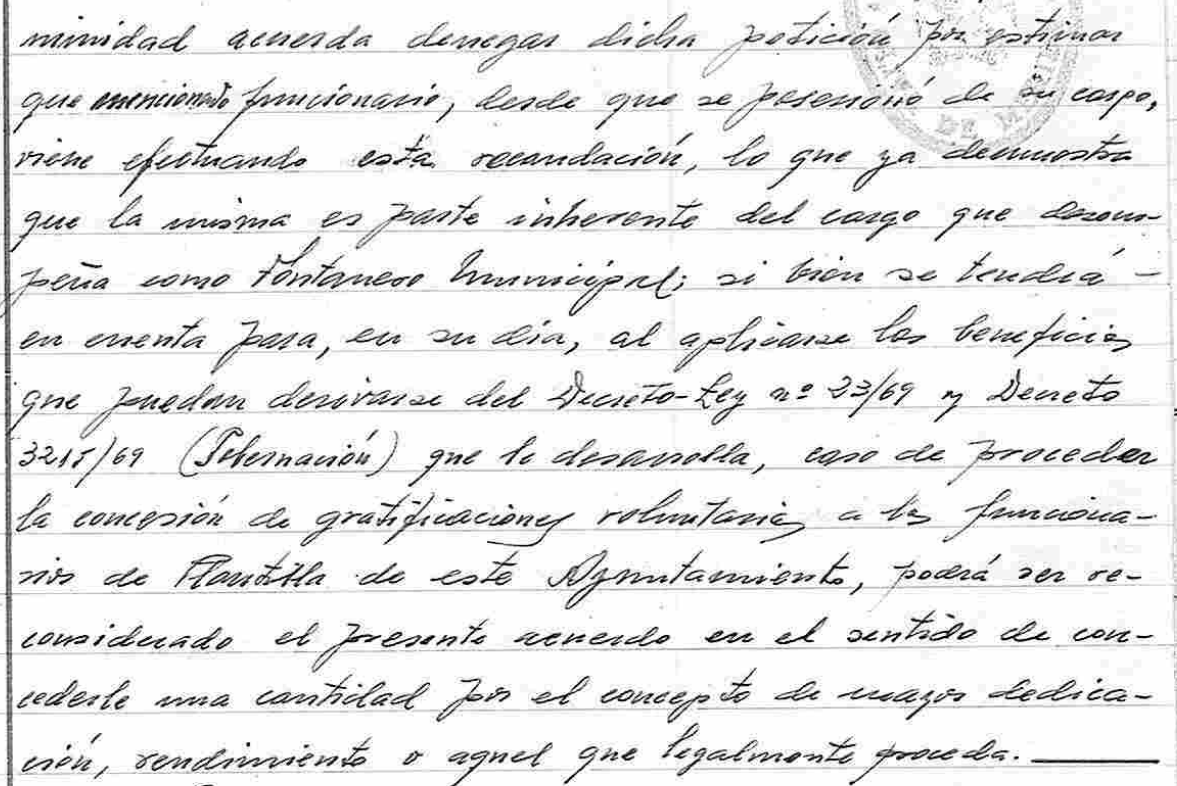 nimidad acuerda denegar dicha petición por estimar
que mencionado funcionario, desde que se posesionó de su cargo,
viene efectuando esta recaudación, lo que ya demuestra
que la misma es parte inherente del cargo que desem-
peña como Fontanero Municipal; si bien se tendrá -
en cuenta para, en su día, al aplicarse los beneficios
que puedan derivarse del Decreto-Ley nº 23/69 y Decreto
3215/69 (Gobernación) que lo desarrolla, caso de proceder
la concesión de gratificaciones voluntarias a los funciona-
rios de Plantilla de este Ayuntamiento, podrá ser re-
considerado el presente acuerdo en el sentido de con-
cederle una cantidad por el concepto de mayor dedica-
ción, rendimiento o aquel que legalmente proceda.